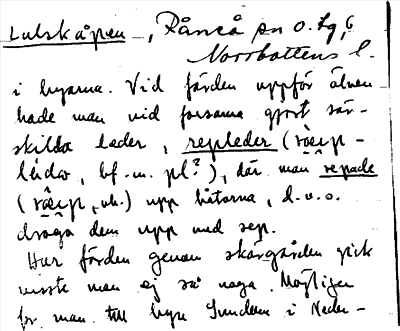 Lulskåpen –, Råneå sn o. tg,
Norrbottens l.
i byarna. Vid färden uppför älven
hade man vid forsarna gjort sär-
skilda leder, repleder (råe̯p-
lèidar, bf. m. pl?), där man repade
(råe̯p, vb.) upp båtarna, d.v.s.
droga dem upp med rep.
Hur färden genom skärgården gick
visste man ej så noga. Möjligen
for man till byn Sundom i Neder-